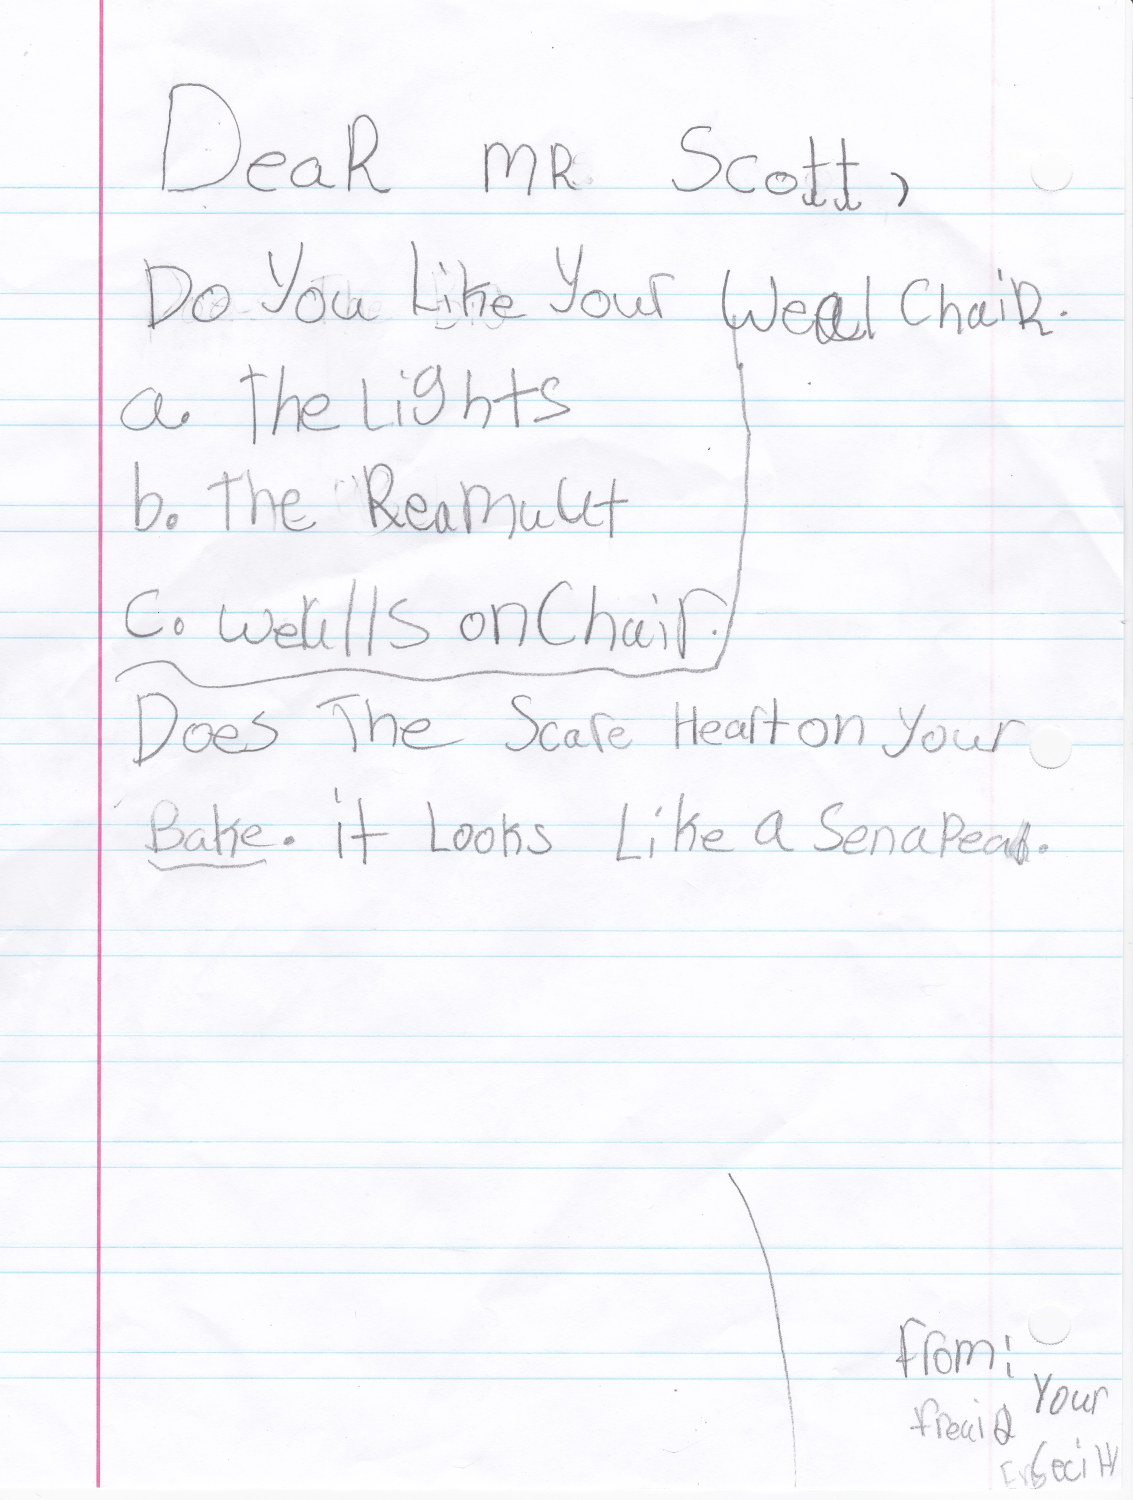 Dear mr Scott,
Do You Like Your Weal Chair.
a. The Lights
b. The Reamult
c. wells on Chair.
Does The Scare Heart on Your
Bake. it Looks Like a Senapeal.
From:
Your
freaid